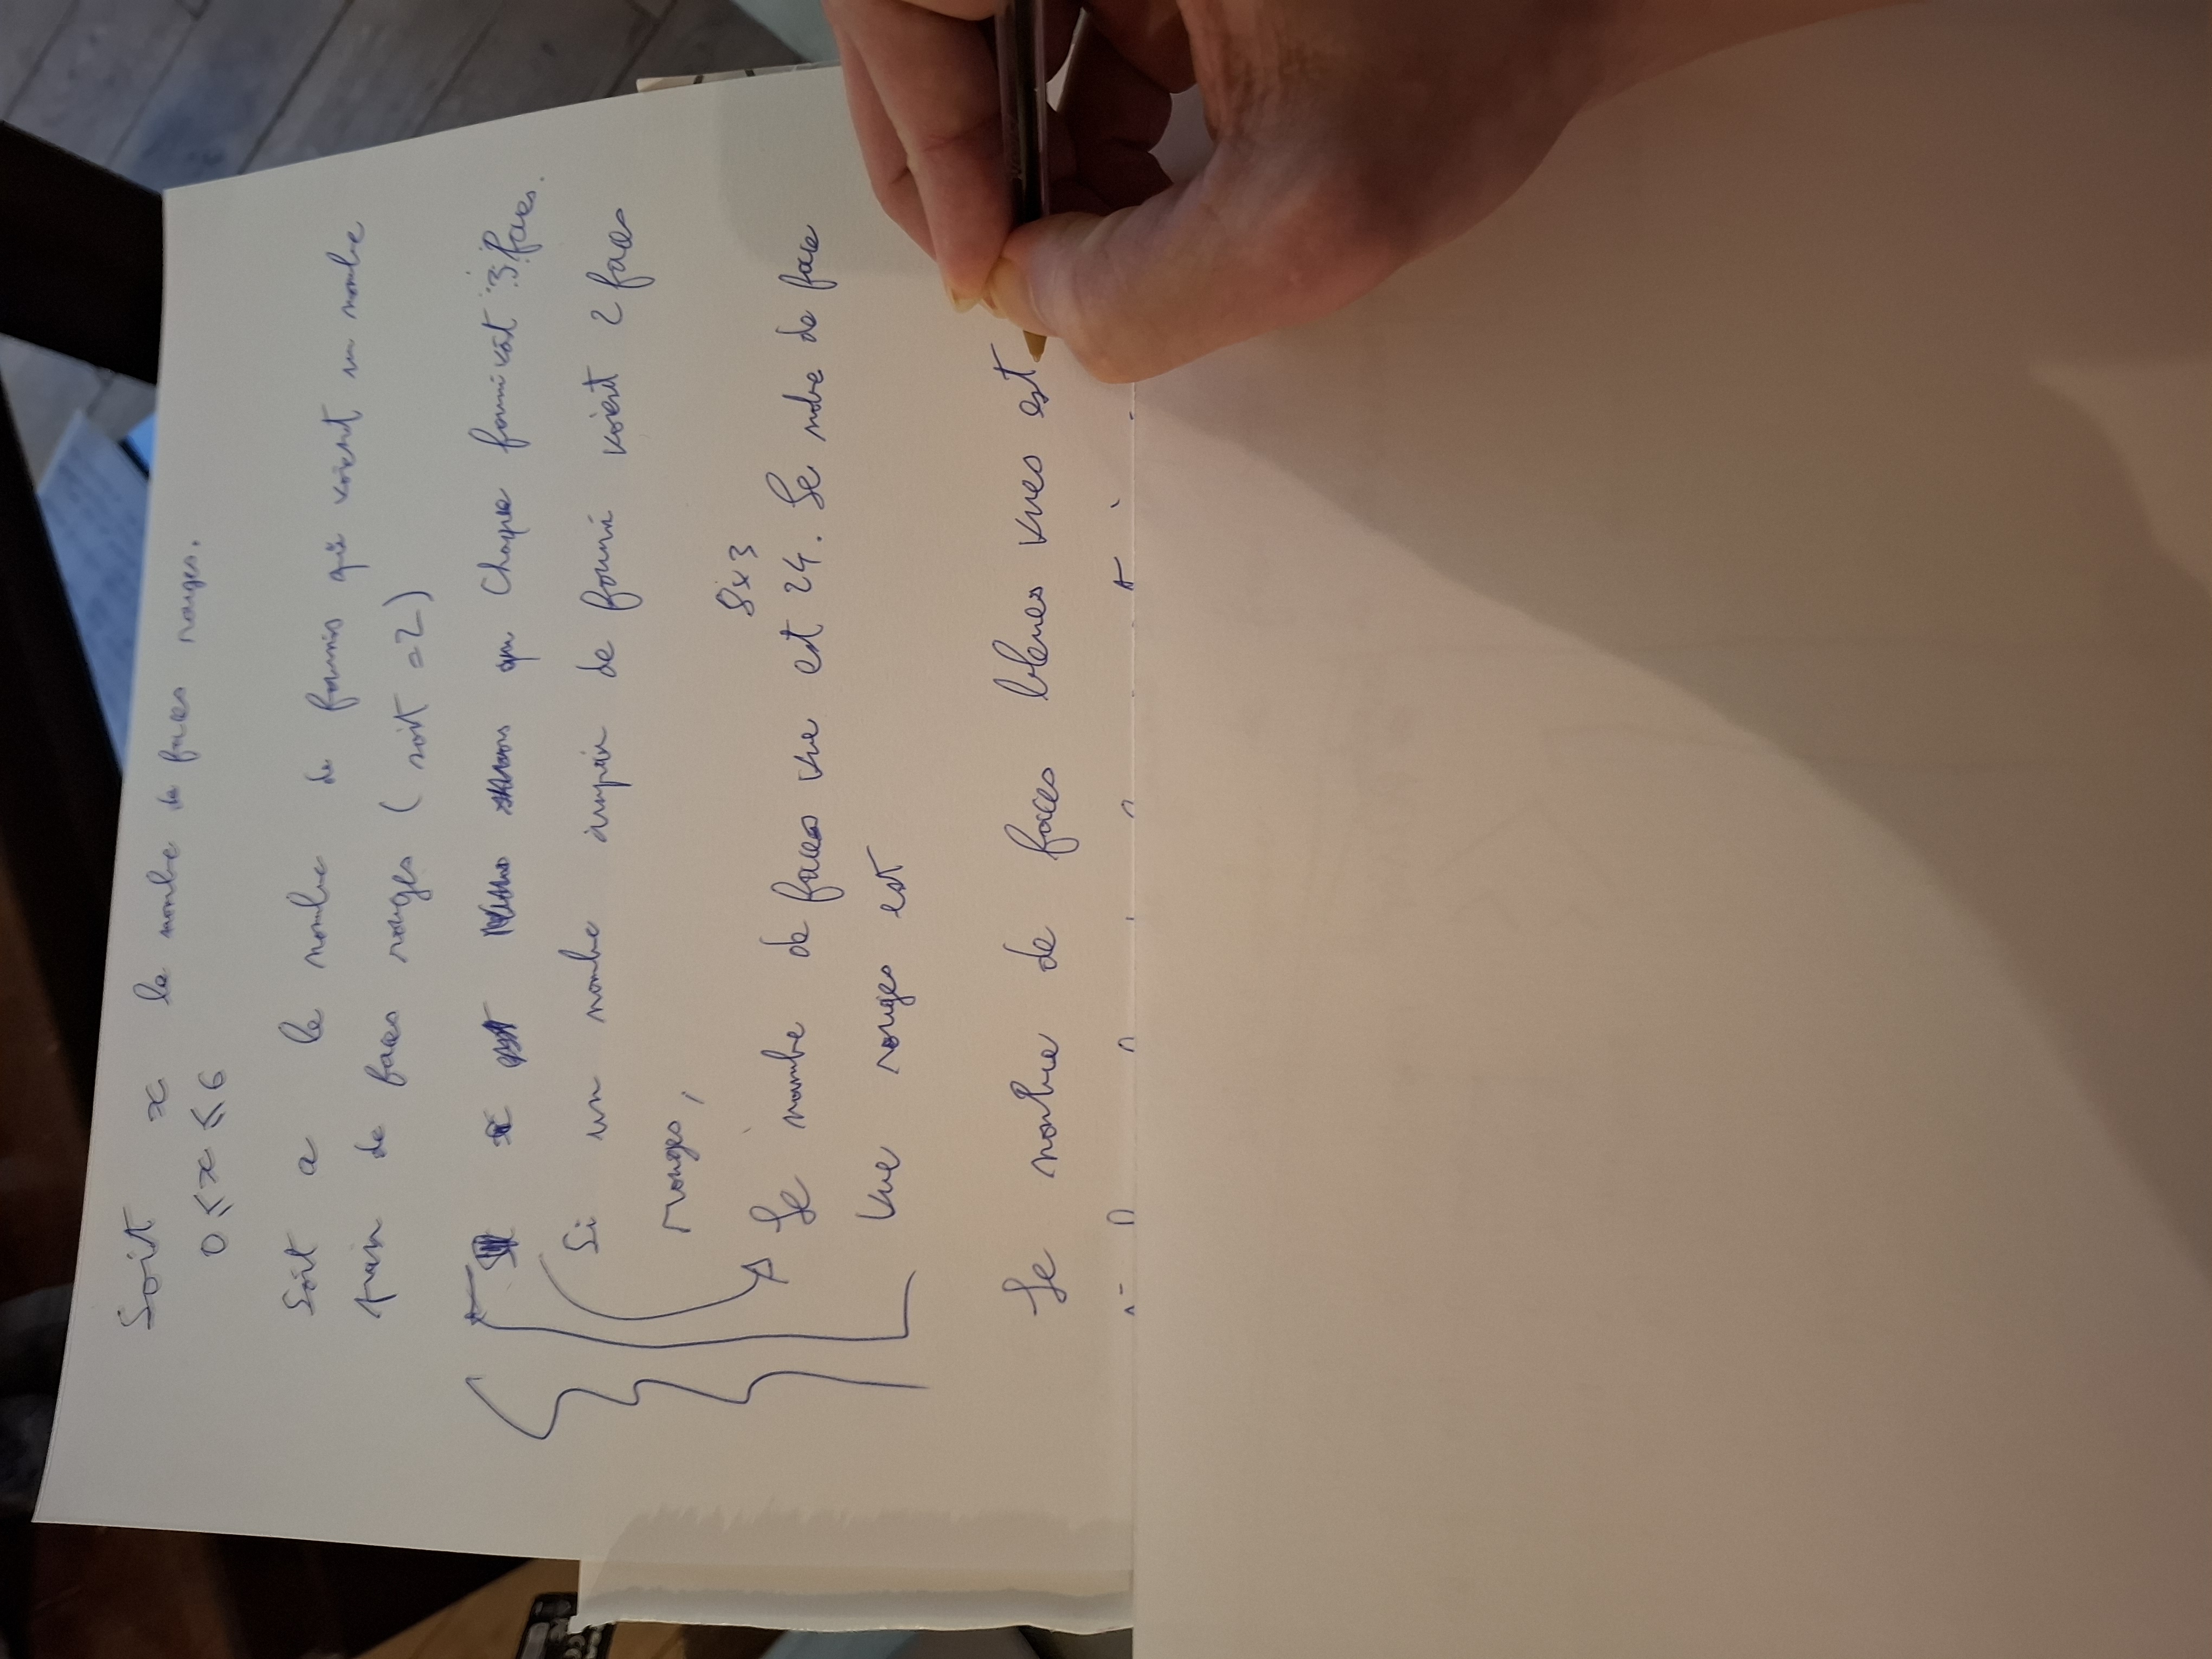 Soit x le nombre de faces rouges.
0 ⩽ x ⩽ 6
Soit a le nombre de fourmis qui voient un nombre
pair de faces rouges ( soit = 2 )
que Chaque fourmi voit 3 faces.
Si un nombre impair de fourmi voient 2 faces
rouges,
8x3
Le nombre de faces vue est 24. Le nbre de face
vue rouges est
Le nombre de faces bleues vues est